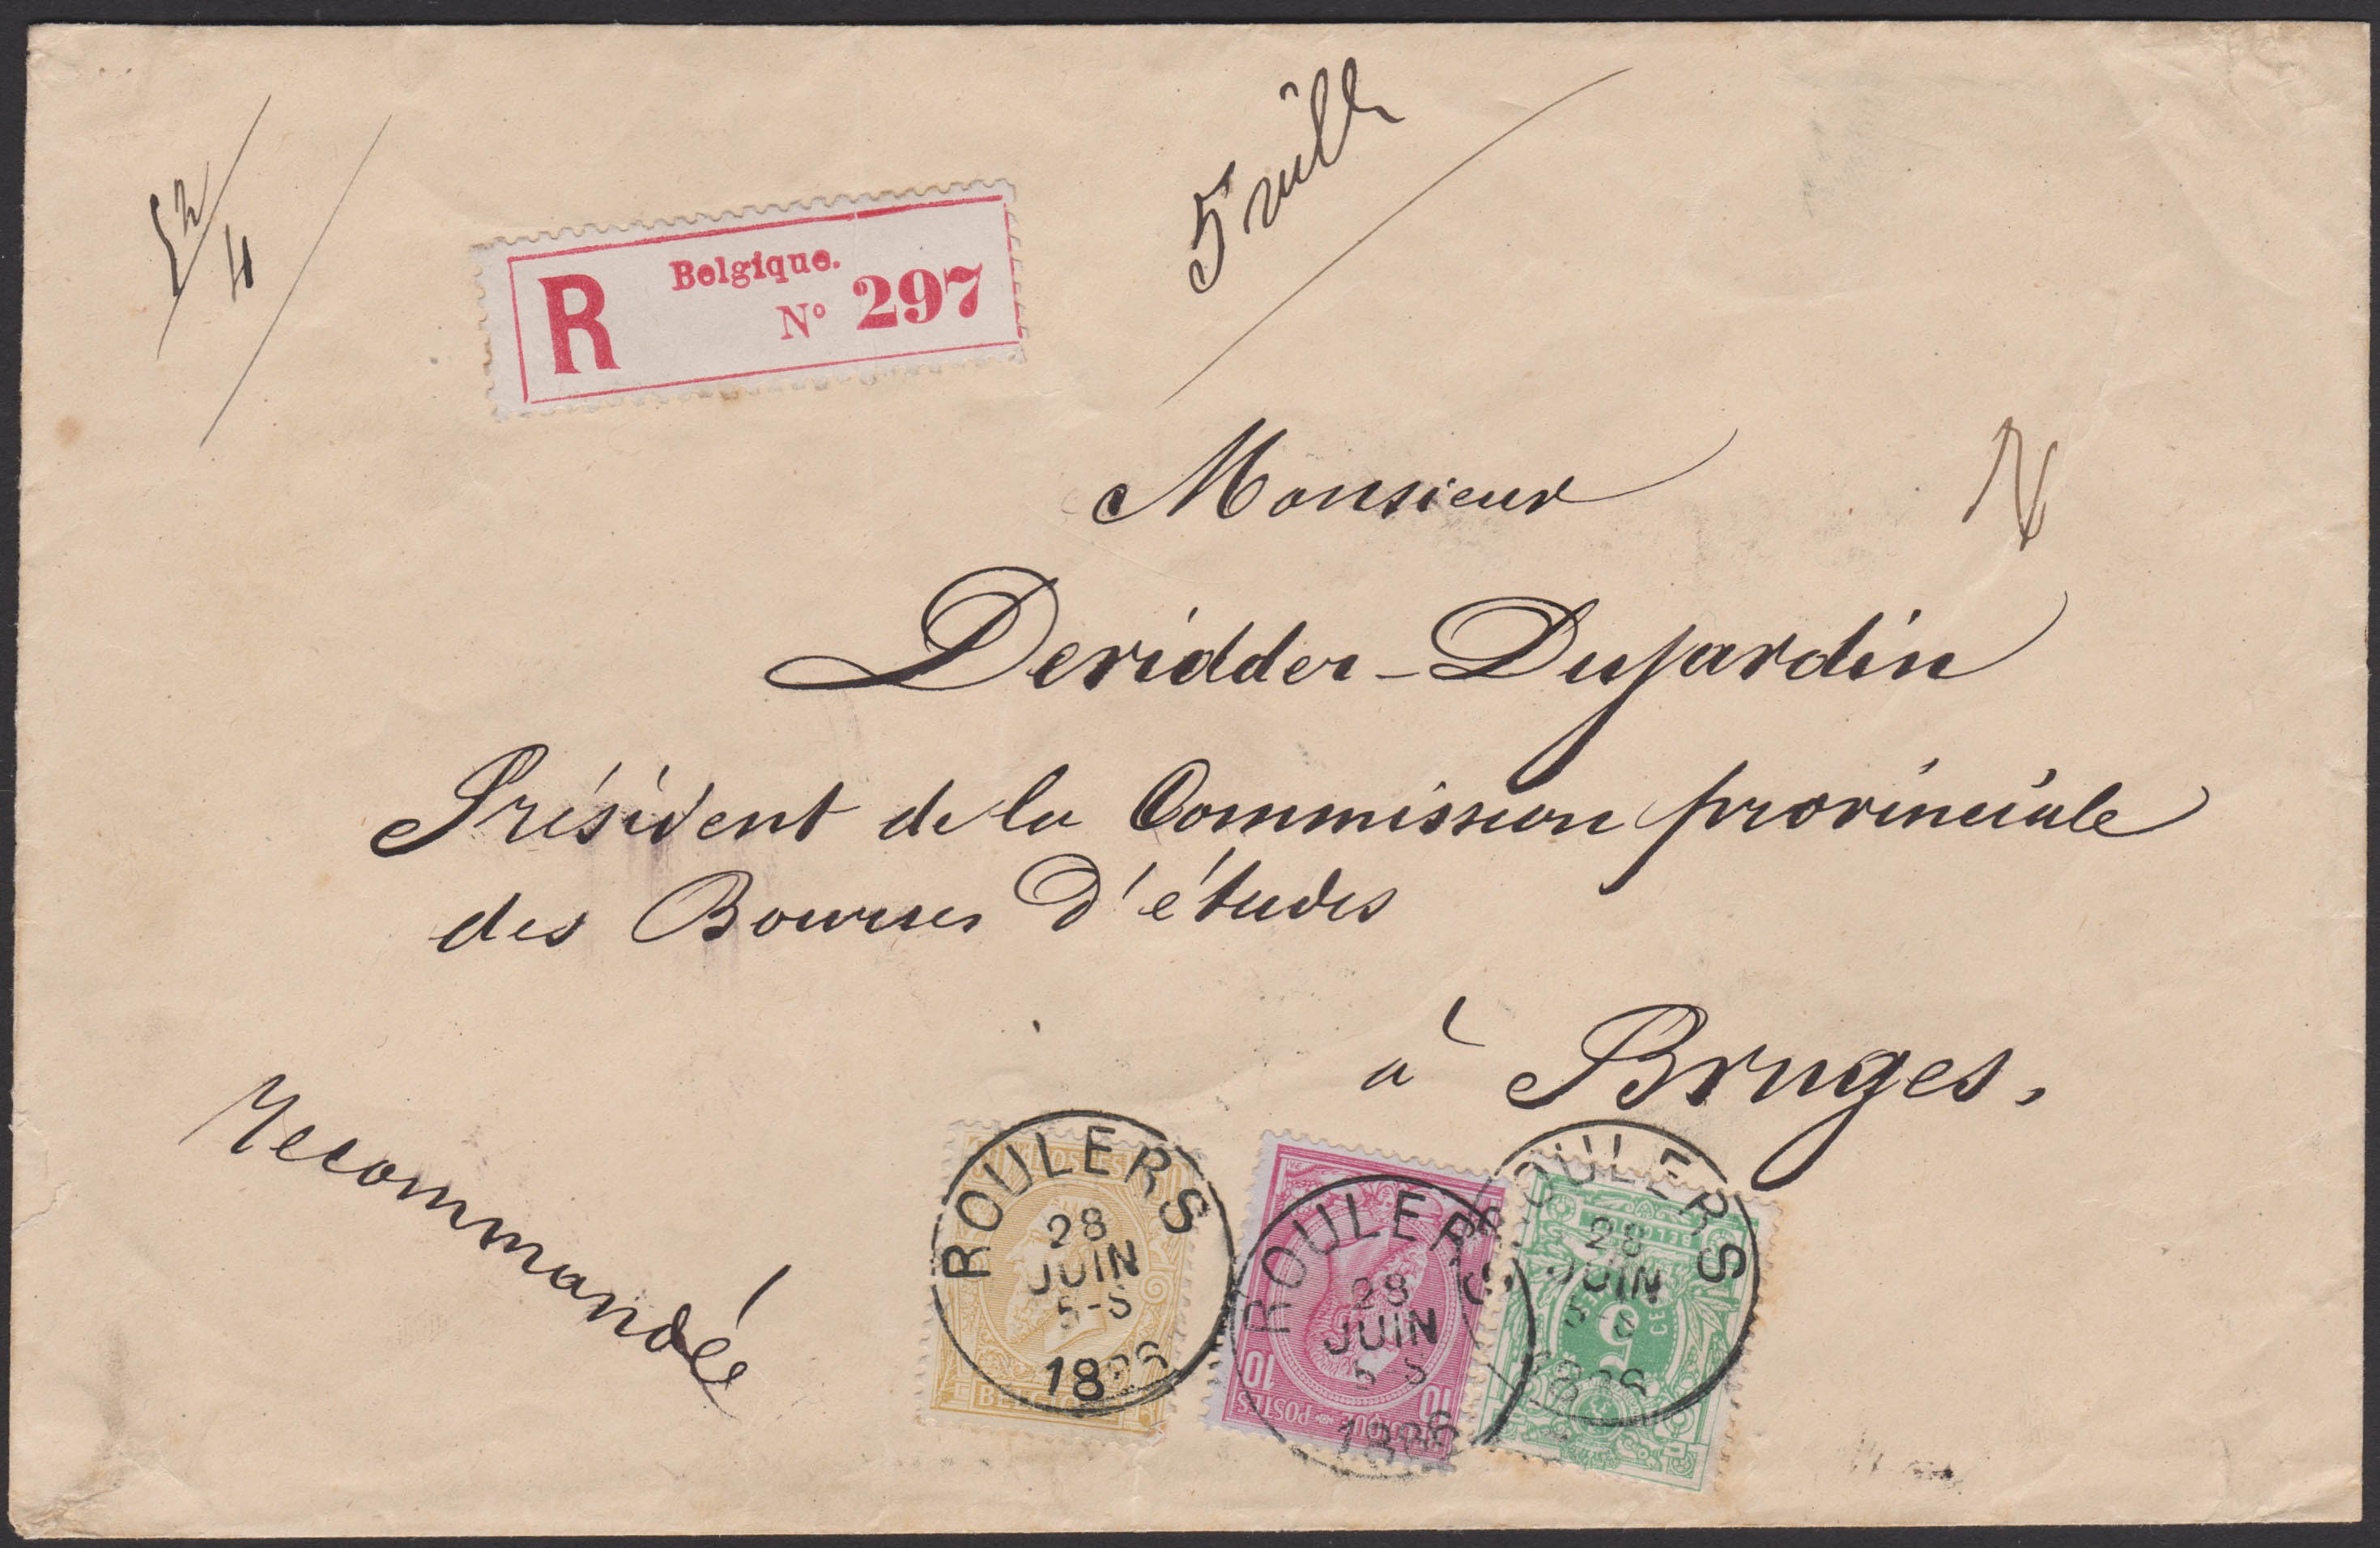 Belgique.
R N° 297
Monsieur
Deridder-Dujardin
Président de la Commission provinciale
des Bourses d'études
à Bruges.
Recommandé
ROULERS
28
JUIN
5-S
1886
BELGIQUE
ROULERS
28
JUIN
5-S
1886
10 10
BELGIQUE POSTES
ROULERS
28
JUIN
5-S
1886
5